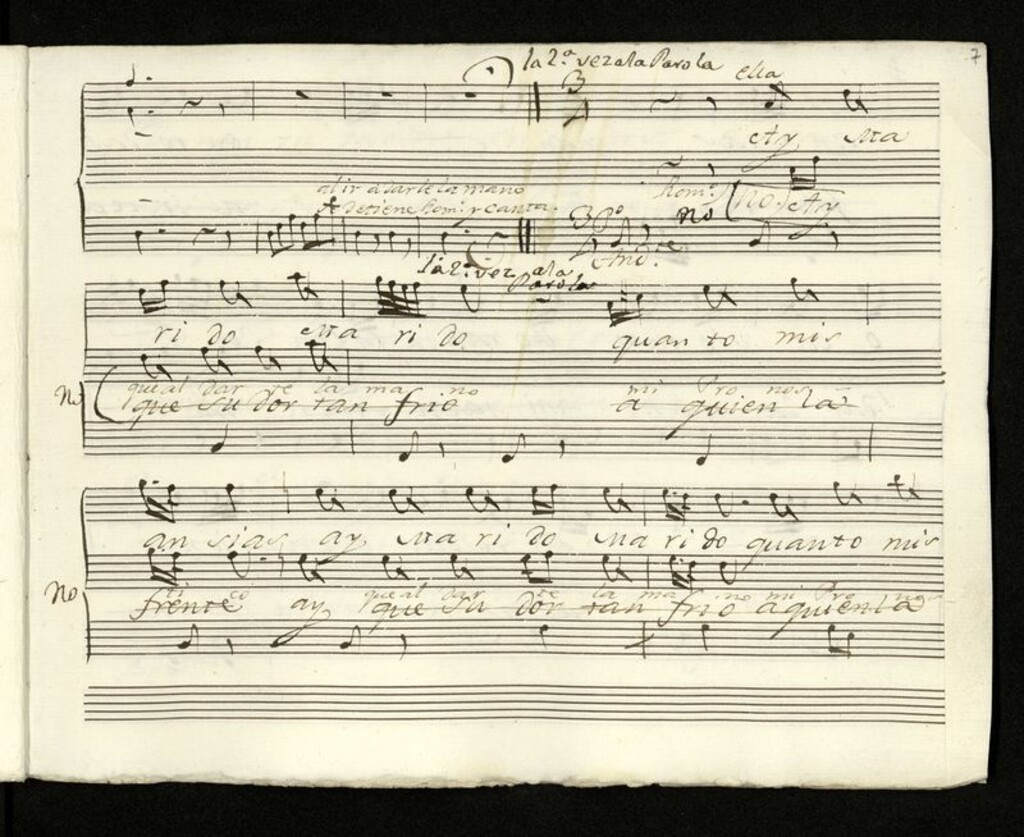 7
la 2.ª vez a la Parola
ella
3
4
Ay Ma
al ir a darle la mano
Rom.º
no
Ay
detiene Rom.º y canta
3 P.º
4
And.te
la 2.ª vez a la
Parola
ri do Ma ri do quan to mis
que al dar te la ma no mi Pro nos
No que su dor tan frio a quien la
an sias ay Ma ri do Ma ri do quanto mis
ti co que al dar te la ma no mi Pro
No frente ay que su dor tan frio a quien la